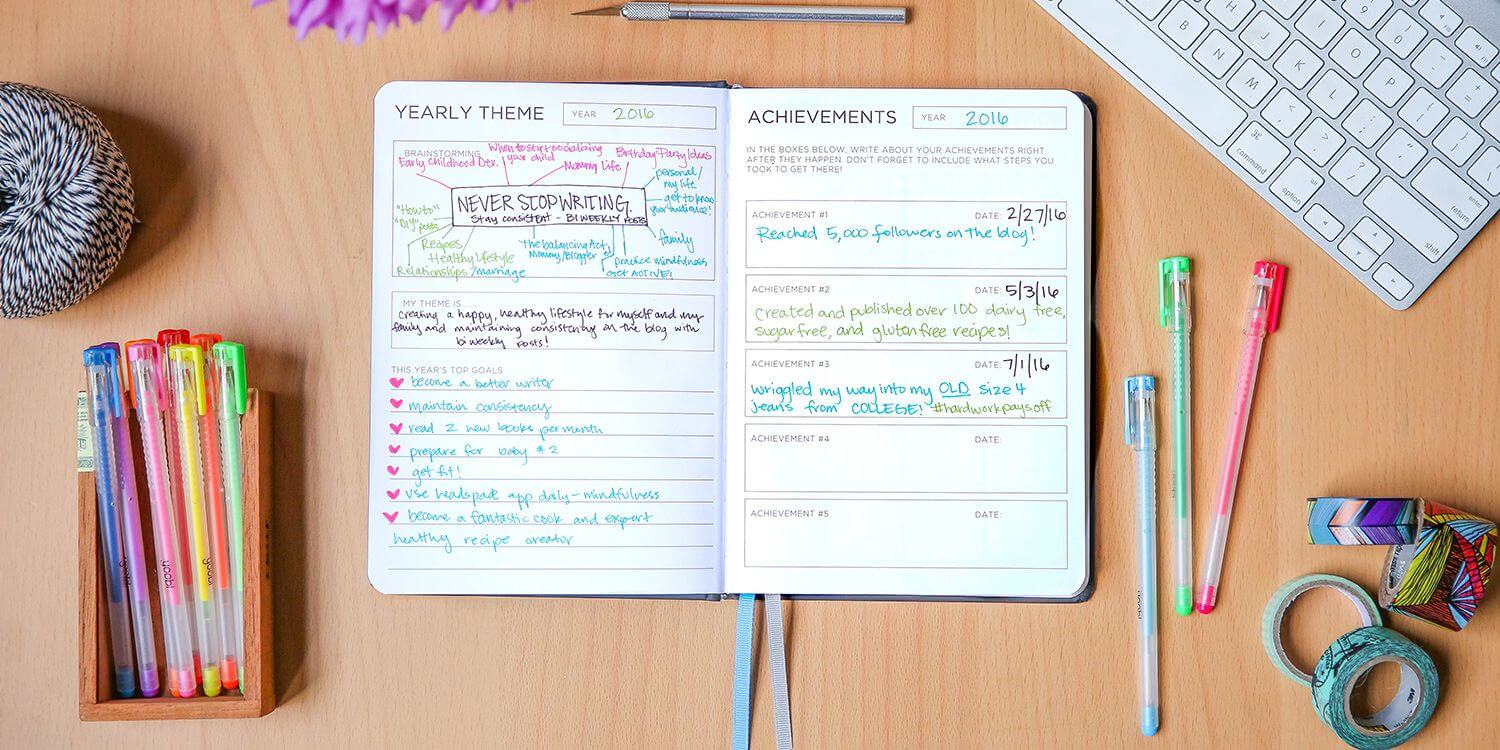 YEARLY THEME
YEAR 2016
BRAINSTORMING
Early Childhood Dev.
When to start socializing
your child
Mommy Life
Birthday Party Ideas
personal/
my life
get to know
your audience!
NEVER STOP WRITING.
Stay consistent - BIWEEKLY POSTS
"How to"
"DIY" posts
Recipes
Healthy Lifestyle
Relationships/marriage
The balancing Act,
Mommy/Blogger
family
practice mindfulness
Get ACTIVE!
MY THEME IS . . .
creating a happy, healthy lifestyle for myself and my
family and maintaining consistency on the blog with
biweekly posts!
THIS YEAR'S TOP GOALS
become a better writer
maintain consistency
read 2 new books per month
prepare for baby #2
get fit!
use headspace app daily - mindfulness
become a fantastic cook and expert
healthy recipe creator
ACHIEVEMENTS
YEAR 2016
IN THE BOXES BELOW, WRITE ABOUT YOUR ACHIEVEMENTS RIGHT
AFTER THEY HAPPEN. DON'T FORGET TO INCLUDE WHAT STEPS YOU
TOOK TO GET THERE!
ACHIEVEMENT #1 DATE: 2/27/16
Reached 5,000 followers on the blog!
ACHIEVEMENT #2 DATE: 5/3/16
Created and published over 100 dairy free,
sugar free, and gluten free recipes!
ACHIEVEMENT #3 DATE: 7/1/16
wriggled my way into my OLD size 4
jeans from COLLEGE! #hardworkpaysoff
ACHIEVEMENT #4 DATE:
ACHIEVEMENT #5 DATE:
yoobi
yoobi
yoobi
B
N
M
H
J
K
L
I
O
P
command
option
return
shift
3M